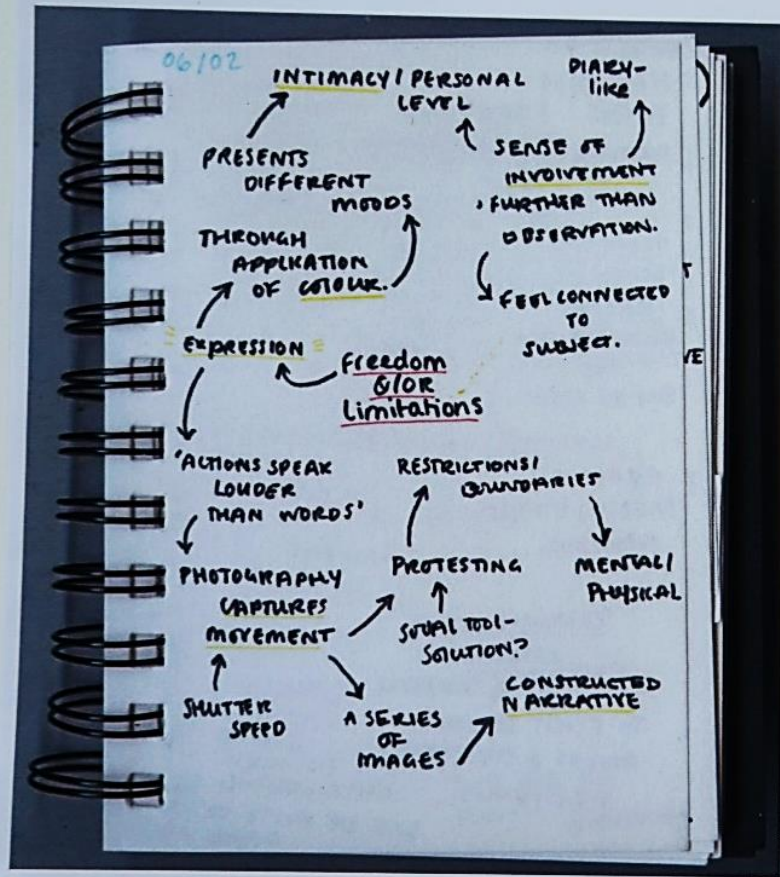 06/02
INTIMACY / PERSONAL
LEVEL
DIARY-
like
PRESENTS
DIFFERENT
MOODS
SENSE OF
INVOLVEMENT
, FURTHER THAN
OBSERVATION.
THROUGH
APPLICATION
OF COLOUR.
FEEL CONNECTED
TO
SUBJECT.
EXPRESSION
Freedom
&/OR
Limitations
'ACTIONS SPEAK
LOUDER
THAN WORDS'
RESTRICTIONS/
BOUNDARIES
PHOTOGRAPHY
CAPTURES
MOVEMENT
PROTESTING
MENTAL/
PHYSICAL
SOCIAL TOOL-
SOLUTION?
SHUTTER
SPEED
A SERIES
OF
IMAGES
CONSTRUCTED
NARRATIVE
T
VE